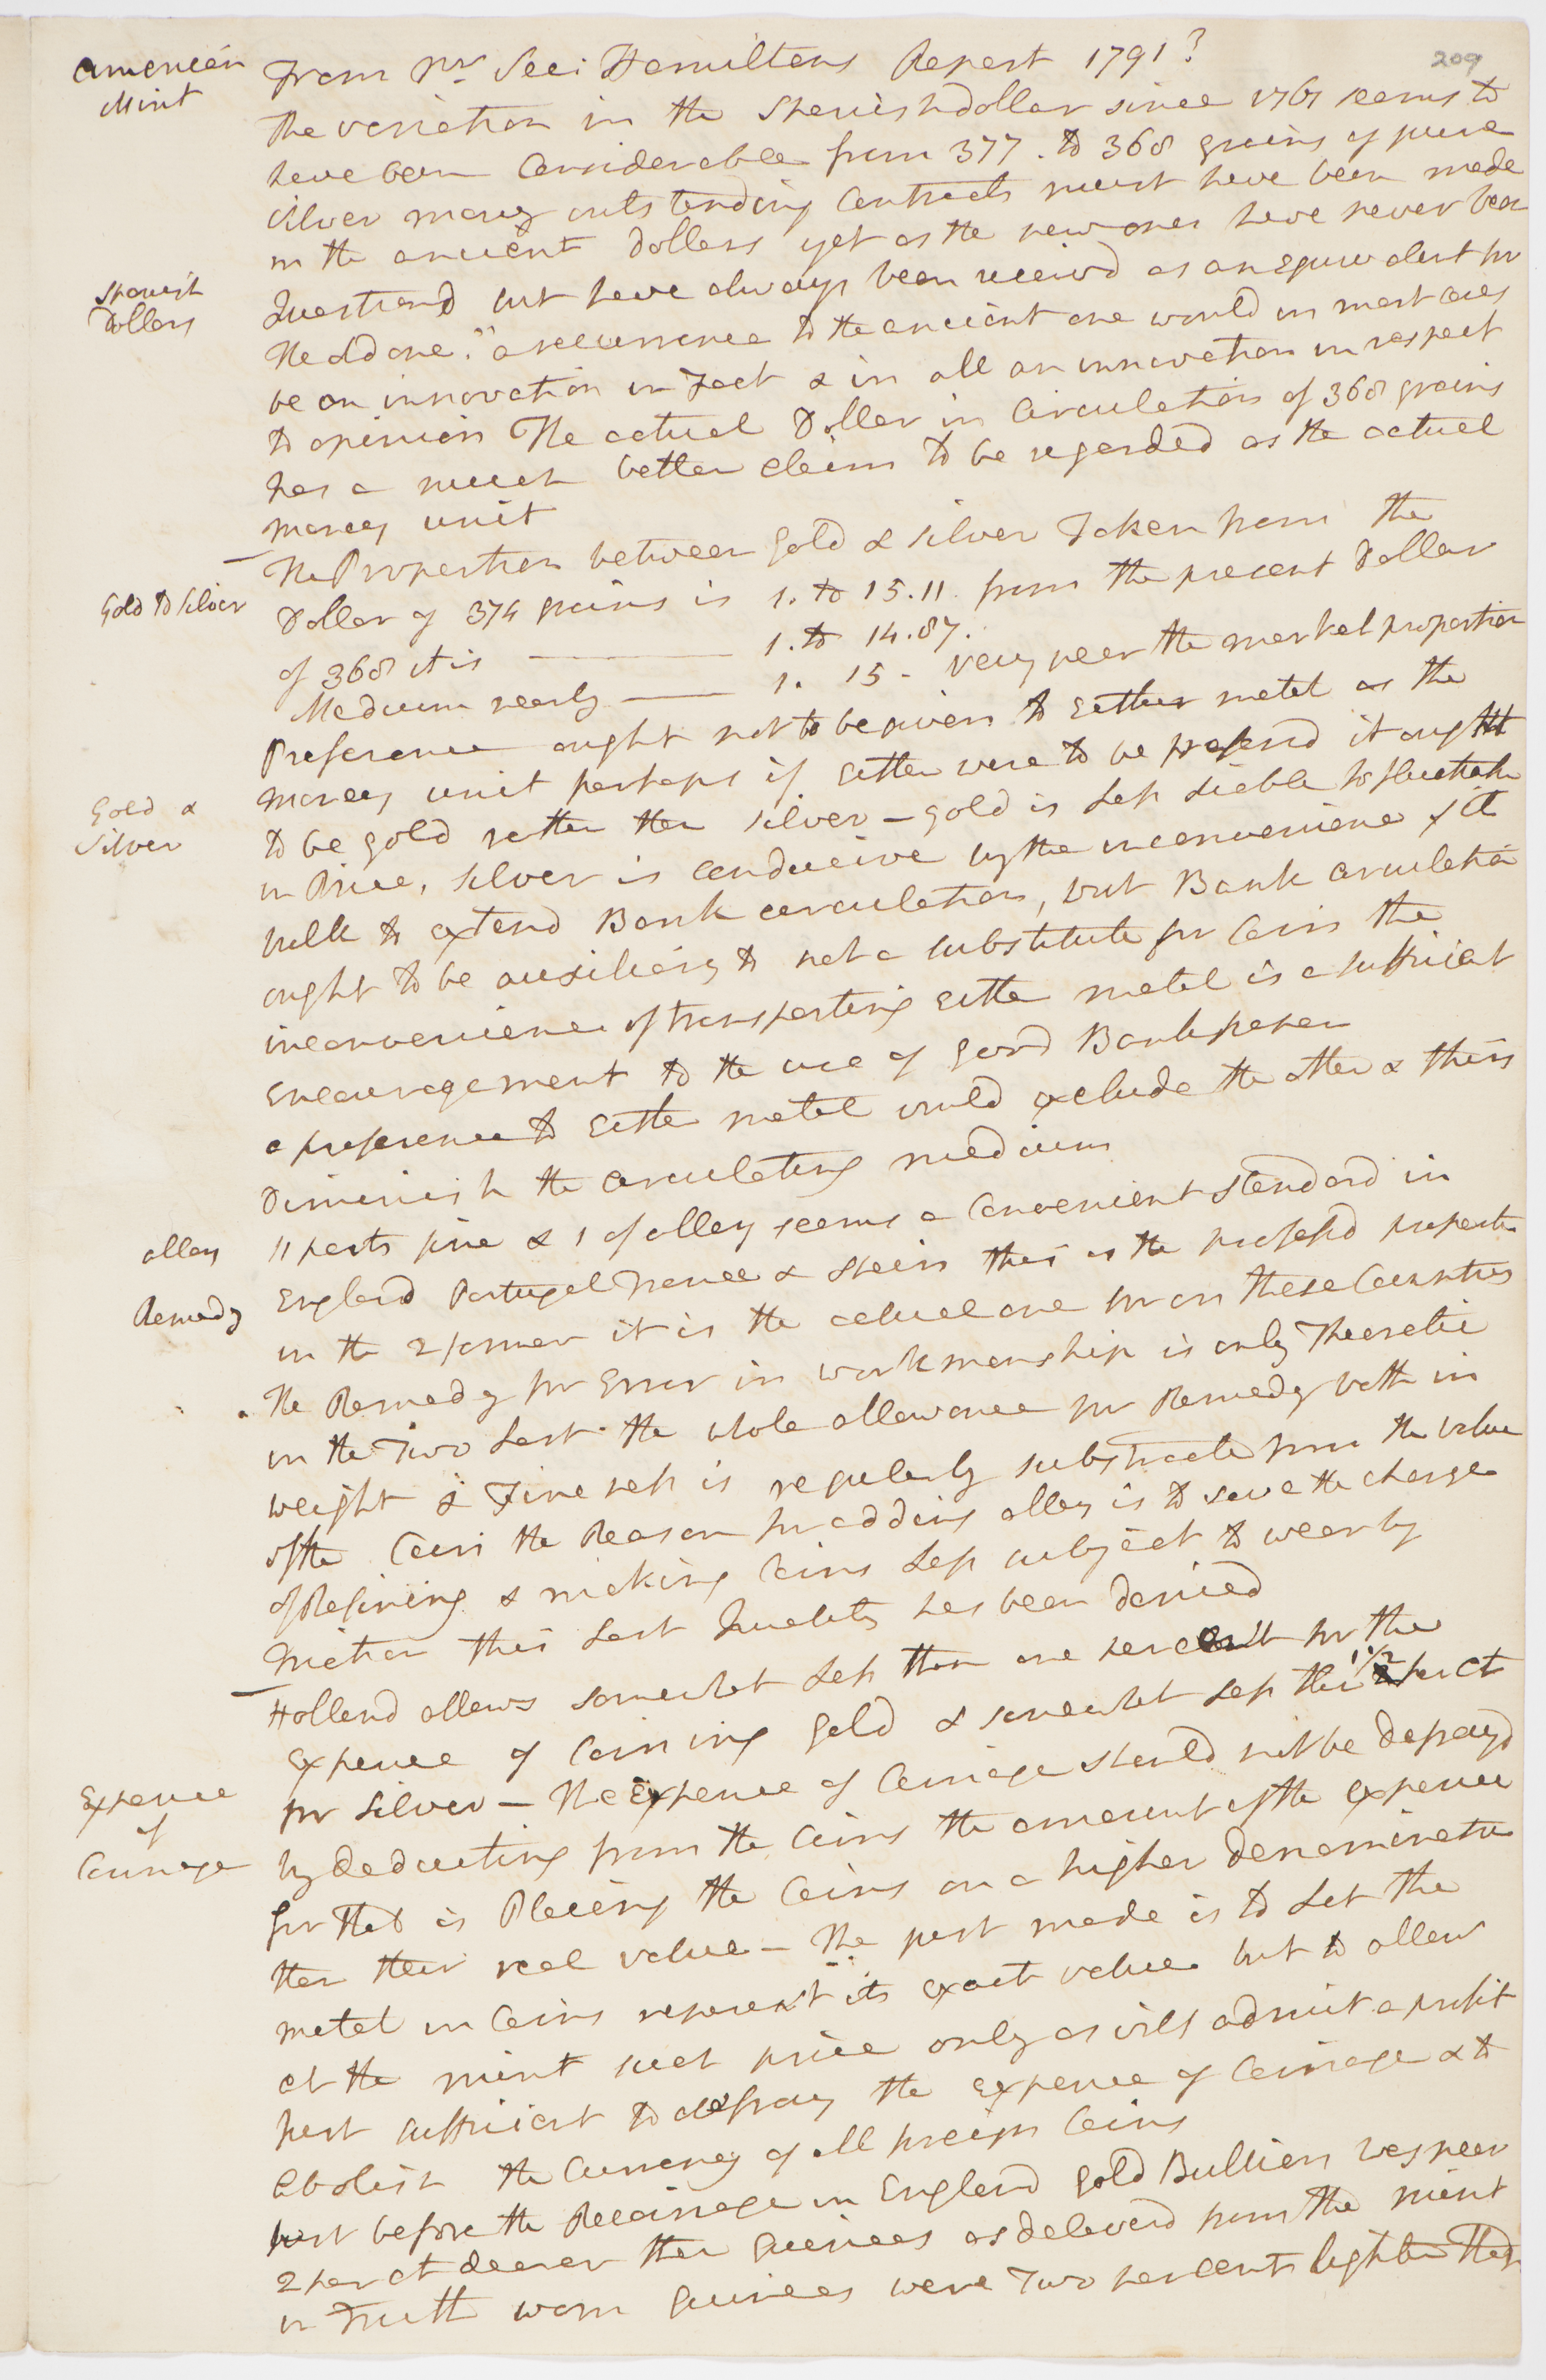 American
Mint
209
From Mr Sec: Hamiltons Report 1791?
The variation in the Spanish dollar since 1761 seems to
have been Considerable from 377. to 368 grains of pure
silver many outstanding Contracts must have been made
in the ancient Dollars yet as the new ones have never been
Questiond but have always been receivd as an Equivalent for
Spanish
Dollars
the old one." a recurrence to the ancient one would in most cases
be an innovation in Fact & in all an innovation in respect
to opinion The actual Dollar in Circulation of 368 grains
has a much better claim to be regarded as the actual
money unit
The Proportion between gold & silver Taken from the
Gold to Silver
Dollar of 374 grains is 1. to 15.11. from the present Dollar
of 368 it is — 1. to 14.87.
Medium nearly — 1. 15 - very near the market proportion
Preference ought not to be given to Either metal as the
money unit perhaps if Either were to be preferd it ought
Gold &
Silver
to be gold rather than silver – gold is less liable to fluctuate
in Price, silver is conducive by the inconvenience of its
bulk to extend Bank circulation, but Bank circulation
ought to be auxiliary to not a substitute for Coin the
inconvenience of transporting Either metal is a sufficient
Encouragement to the use of good Bank paper
a preference to Either metal would exclude the other & thus
Diminish the circulating medium
alloy
11 parts fine & 1 of alloy seems a Convenient standard in
England Portugal France & Spain this is the professd proportion
Remedy
in the 2 former it is the actual one for in these Countries
The Remedy for Error in workmanship is only Theoretic
in the Two last the whole allowance for Remedy both in
weight & Fineness is regularly substracted from the value
of the Coin the Reason for adding alloy is to save the charge
of Refining & making Coins less subject to wear by
Friction this last Quality has been denied
Holland allows somewhat less than one per cent for the
Expence of Coining gold & somewhat less than 1 1/2 per ct
Expence
of
Coinage
for Silver – The Expence of Coinage should not be defrayd
by deducting from the Coins the amount of the Expence
for that is Placing the Coins on a higher denomination
than their real value – The just mode is to Let the
metal in Coins represent its exact value but to allow
at the mint such price only as will admit a profit
just sufficient to defray the Expence of Coinage & to
abolish the Currency of all foreign Coins
just before the Recoinage in England gold Bullion was near
2 per ct dearer than guineas as deliverd from the mint
in Truth worn guineas were Two per cents lighter than